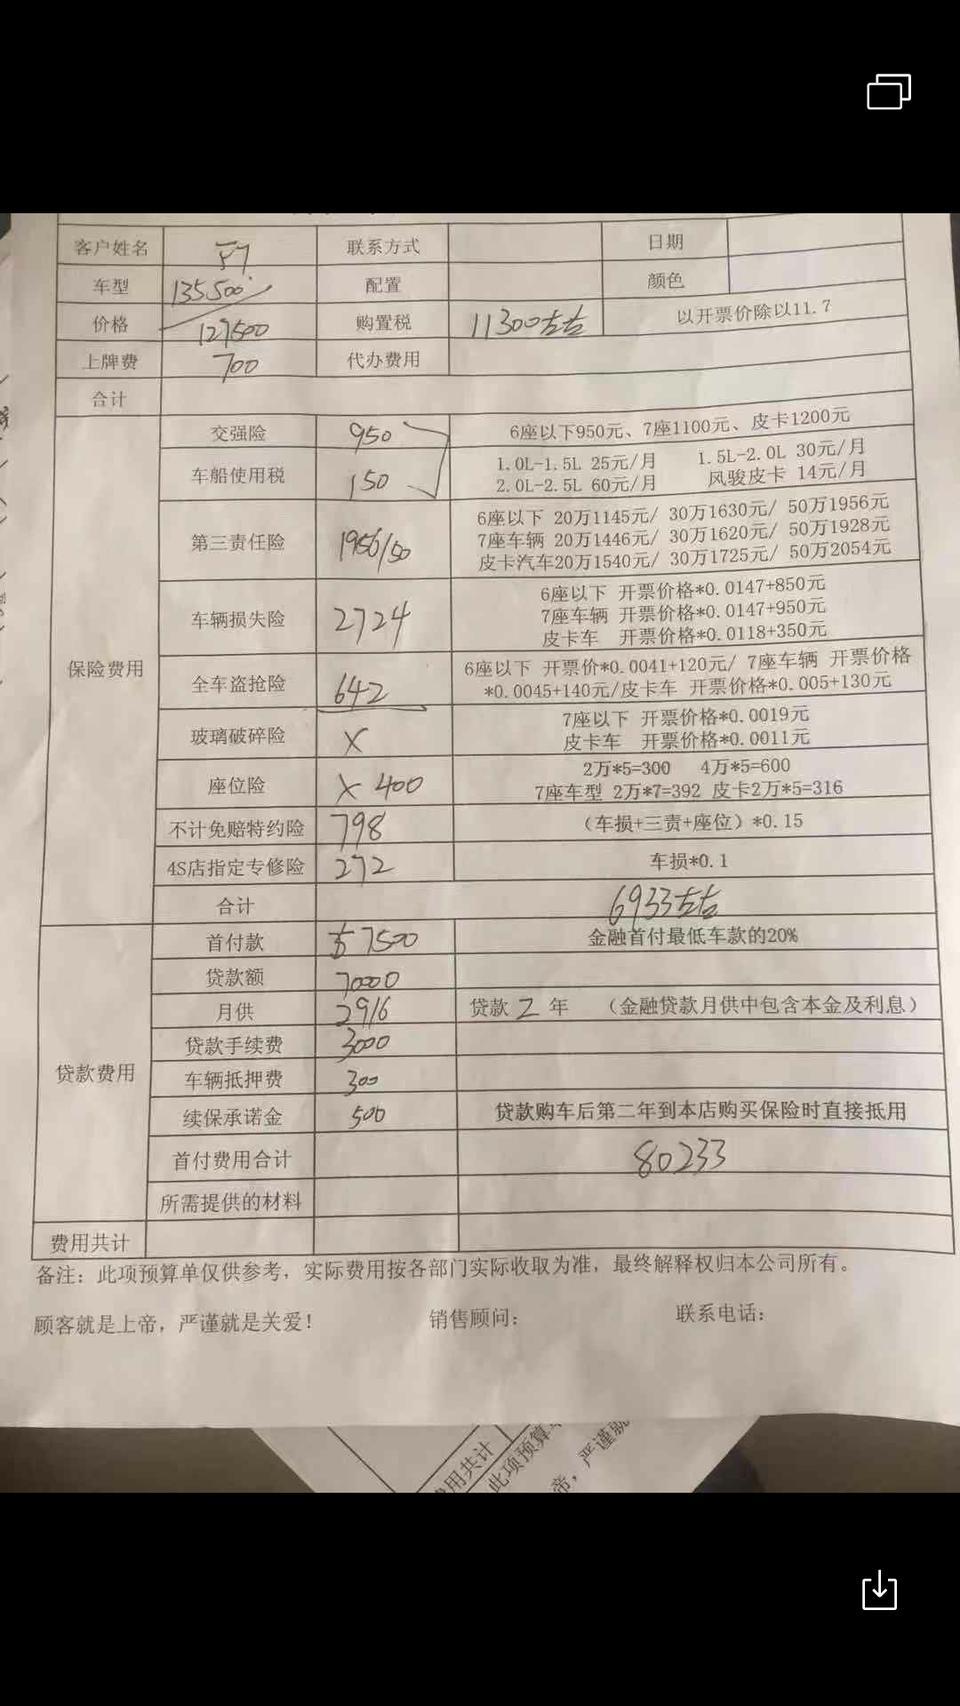 客户姓名 联系方式 日期
车型 135500 配置 颜色
价格 127500 购置税 11300左右 以开票价除以11.7
上牌费 700 代办费用
合计
保险费用
交强险 950 6座以下950元、7座1100元、皮卡1200元
车船使用税 150 1.0L-1.5L 25元/月 1.5L-2.0L 30元/月
2.0L-2.5L 60元/月 风骏皮卡 14元/月
第三责任险 1956/50 6座以下 20万1145元/ 30万1630元/ 50万1956元
7座车辆 20万1446元/ 30万1620元/ 50万1928元
皮卡汽车20万1540元/ 30万1725元/ 50万2054元
车辆损失险 2724 6座以下 开票价格*0.0147+850元
7座车辆 开票价格*0.0147+950元
皮卡车 开票价格*0.0118+350元
全车盗抢险 642 6座以下 开票价*0.0041+120元/ 7座车辆 开票价格
*0.0045+140元/皮卡车 开票价格*0.005+130元
玻璃破碎险 X 7座以下 开票价格*0.0019元
皮卡车 开票价格*0.0011元
座位险 X 400 2万*5=300 4万*5=600
7座车型 2万*7=392 皮卡2万*5=316
不计免赔特约险 798 (车损+三责+座位)*0.15
4S店指定专修险 272 车损*0.1
合计 6933左右
贷款费用
首付款 57500 金融首付最低车款的20%
贷款额 70000
月供 2916 贷款 2 年 (金融贷款月供中包含本金及利息)
贷款手续费 3000
车辆抵押费 300
续保承诺金 500 贷款购车后第二年到本店购买保险时直接抵用
首付费用合计 80233
所需提供的材料
费用共计
备注：此项预算单仅供参考，实际费用按各部门实际收取为准，最终解释权归本公司所有。
顾客就是上帝，严谨就是关爱！ 销售顾问： 联系电话：
费用共计
此项预算单
帝，严谨就